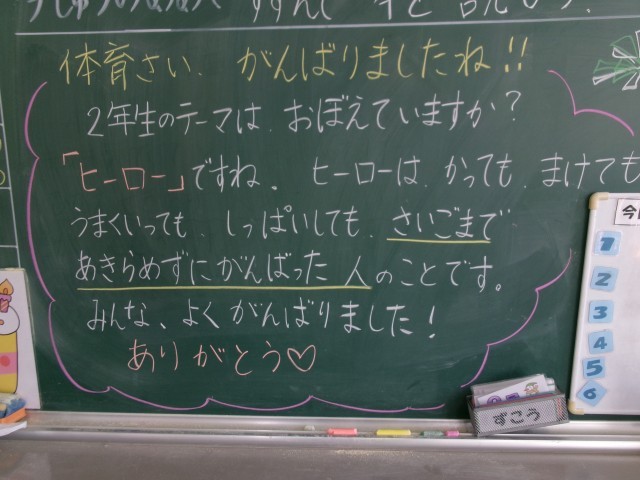 すすんで 本を 読もう.
体育さい、がんばりましたね!!
2年生のテーマは、おぼえていますか?
「ヒーロー」ですね。ヒーローは、かっても、まけても
うまくいっても、しっぱいしても、さいごまで
あきらめずにがんばった人のことです。
みんな、よくがんばりました!
ありがとう♡
今
1
2
3
4
5
6
ずこう